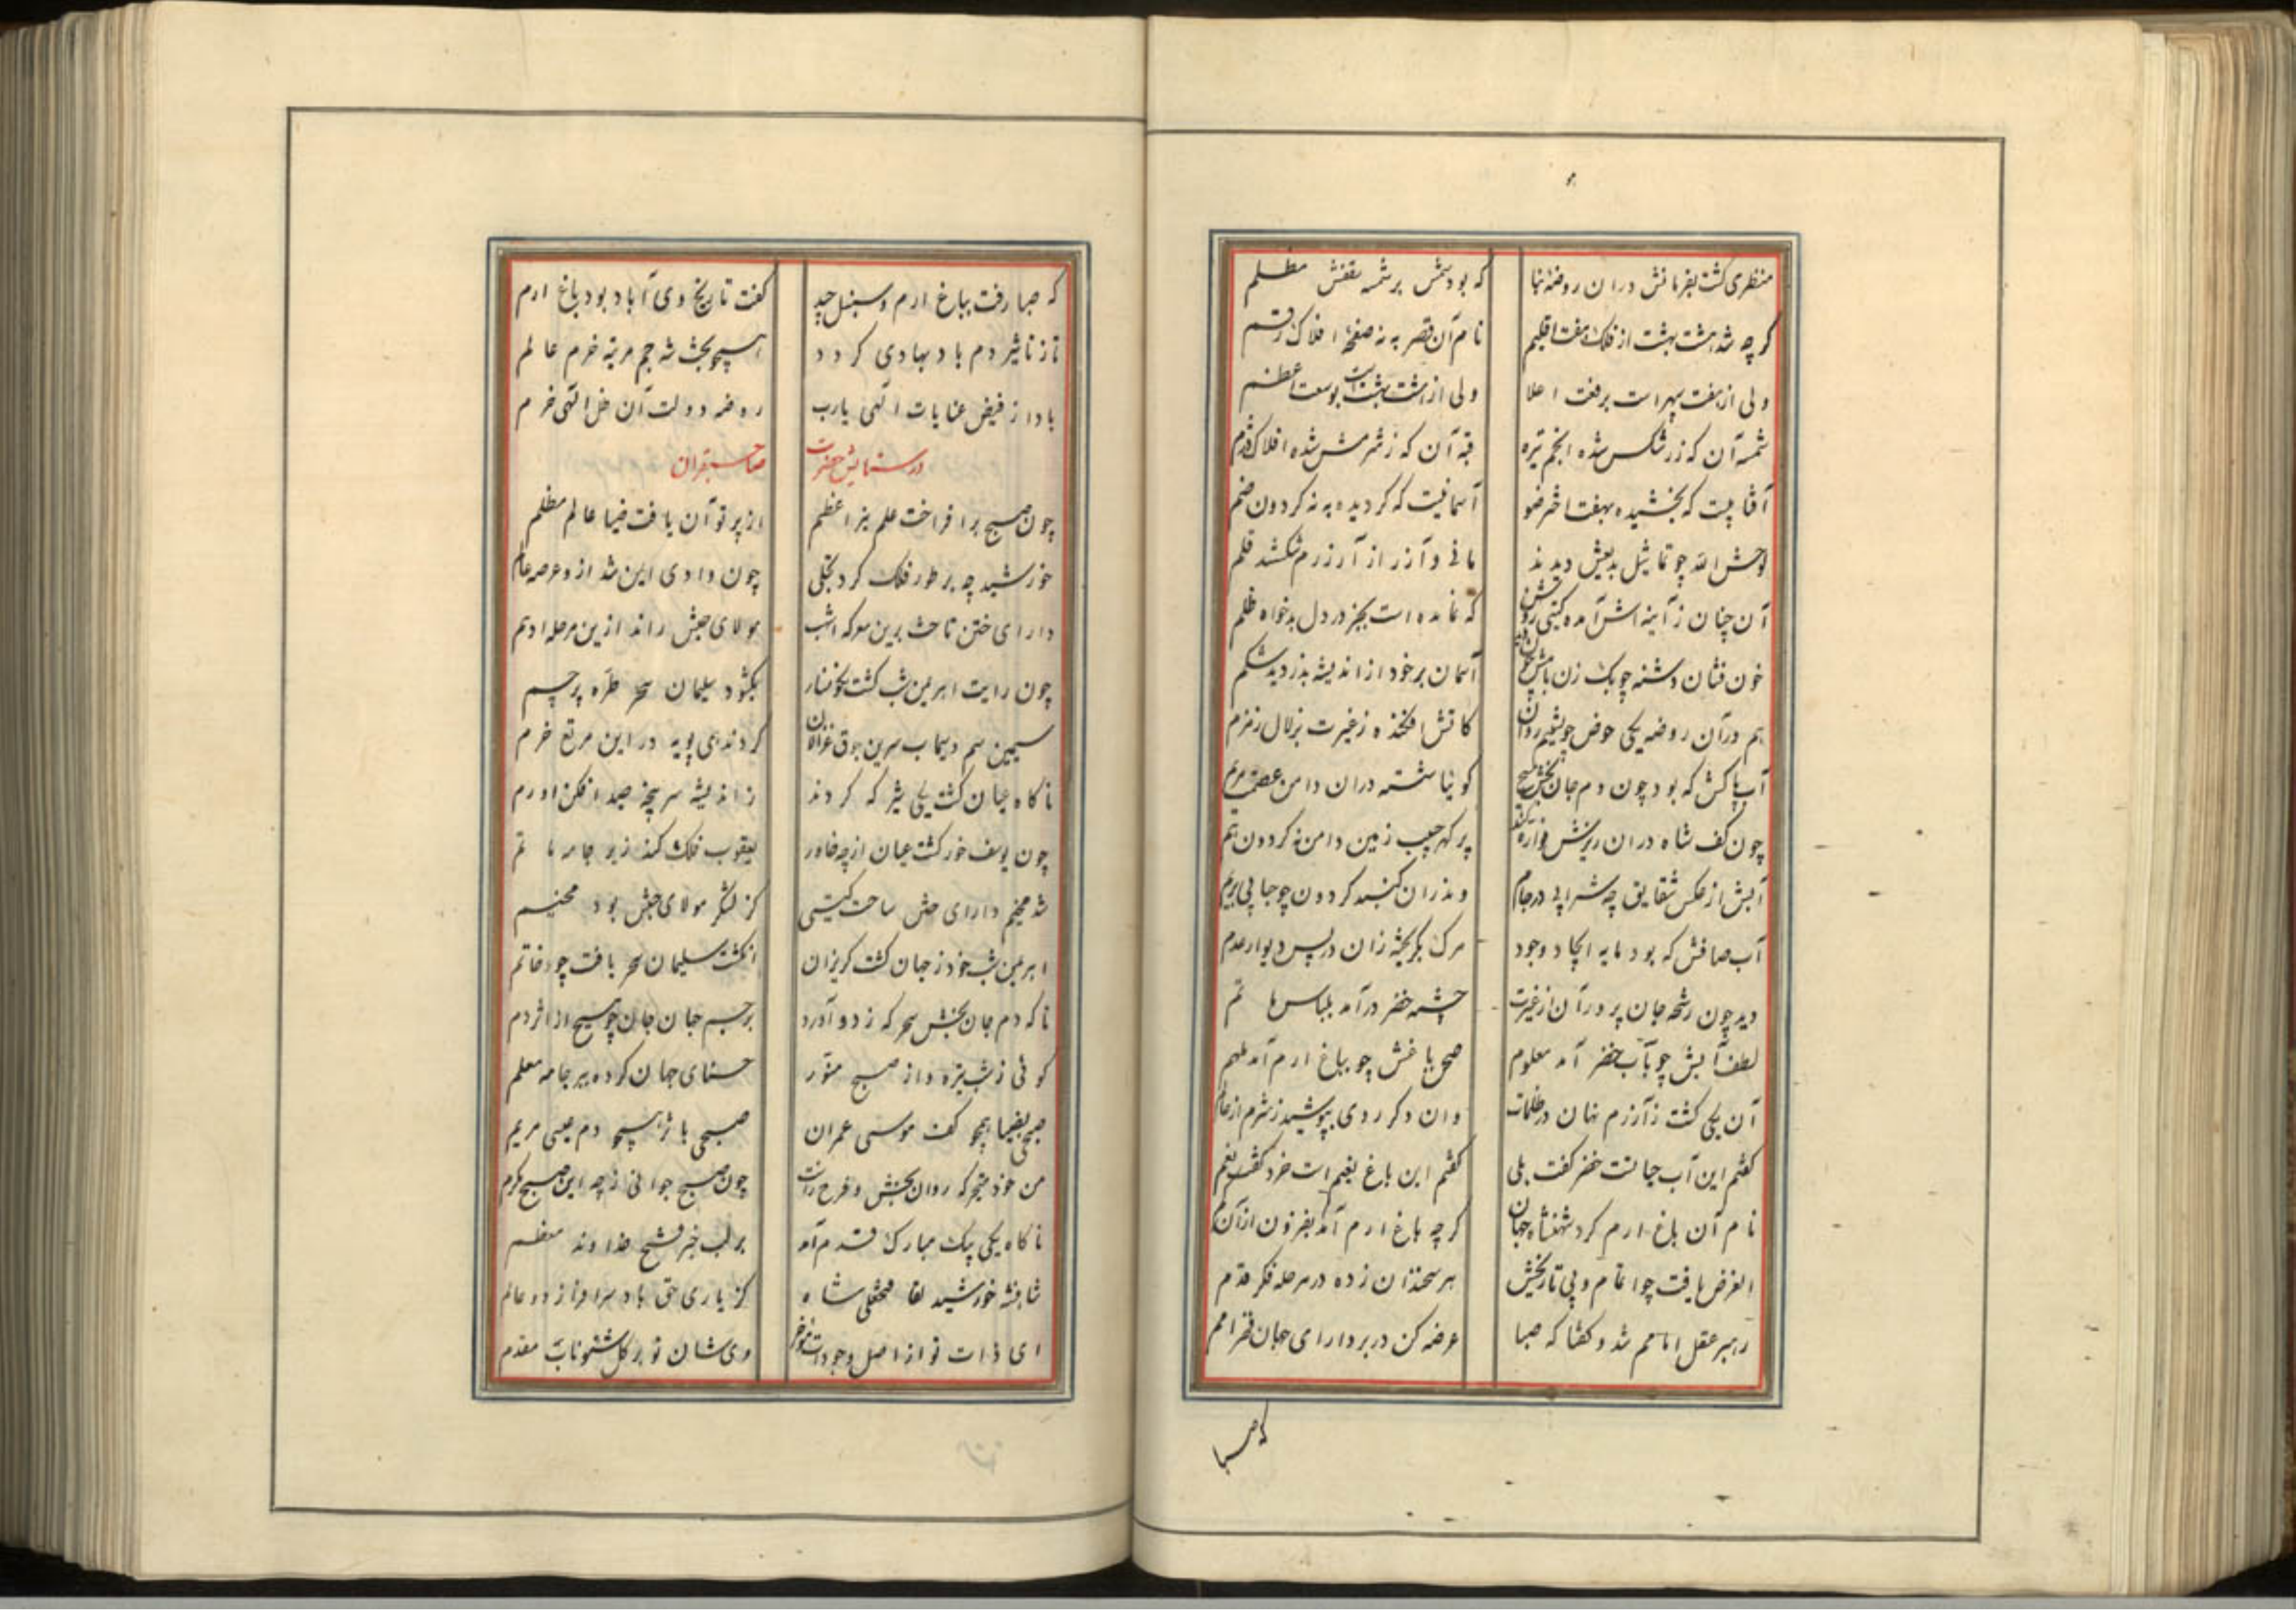 منظری گشت بفرمانش در آن روضه بنا که بود شمس بر شمسه سقفش مظلم
گرچه شد هشت بهشت از فلک هفت اقلیم نام آن قصر به نه صفحه افلاک رقم
ولی از هفت سپهر است برفعت اعلا ولی از هشت بهشت است بوسعت اعظم
شمسه آن که ز رشکش شده انجم تیره قبه آن که ز شرمش شده افلاک دژم
آفتابیست که بخشیده بهفت اختر ضو آسمانیست که گردیده به نه گردون ضم
لوحش الله چو تماثیل بدیعش دیدند مانی و آزر از آزرم شکستند قلم
آن چنان ز آینه اش آمده گیتی روشن که نمانده است بجز در دل بدخواه ظلم
خون فشان دشنه چوبک زن بامش آسمان بر خود از اندیشه بدزدید شکم
هم در آن روضه یکی حوض چو بینیم روان کاتش افکنده ز غیرت بزلال زمزم
آب پاکش که بود چون دم جان بخش مسیح گوئیا شسته در آن دامن عصمت مریم
چون کف شاه در آن ریزش فواره پر گهر جیب زمین دامن نه گردون نم
آبش از عکس شقایق چه شرابی در جام وندر آن گنبد گردون چو حبابی بر یم
آب صافش که بود مایه ایجاد وجود مرگ بگریخته زان در پس دیوار عدم
دید چون رشحه جان پرور آن از غیرت چشمه خضر درآمد بلباس ماتم
لطف آبش چو بآب خضر آمد معلوم صحن باغش چو بباغ ارم آمد ملهم
آن یکی گشت ز آزرم نهان در ظلمات وان دگر روی بپوشید ز شرم از عالم
گفتم این آب حیاتست خضر گفت بلی گفتم این باغ نعیم است خرد گفت نعم
نام آن باغ ارم کرد شهنشاه جهان گرچه باغ ارم آمد بفزون از آن کم
الغرض یافت چو اتمام و پی تاریخش هر سخندان زده در مرحله فکر قدم
رهبر عقل امامم شد و گفتا که صبا عرضه کن در بر دارای جهان فخر امم
که صبا
که صبا رفت بباغ ارم و سنبل چید گفت تاریخ وی آباد بود باغ ارم
تا ز تاثیر دم باد بهاری گردد همچو بخت شه جم مرتبه خرم عالم
بادا ز فیض عنایات الهی یارب روضه دولت آن ظل الهی خرم
در ستایش حضرت صاحبقران
چون صبح برافراخت علم نیر اعظم از پرتو آن یافت ضیا عالم مظلم
خورشید چه بر طور فلک کرد تجلی چون وادی ایمن شد ازو عرصه عالم
دارای ختن تاخت برین معرکه اشهب مولای حبش راند ازین مرحله ادهم
چون رایت اهریمن شب گشت نگونسار بگشود سلیمان سحر طره پرچم
سیمین سم و سیماب سرین جوق غزالان کردند همی پویه در این مرتع خرم
ناگاه عیان گشت یکی شیر که کردند ز اندیشه سرپنجه صید افکن او رم
چون یوسف خور گشت عیان از چه خاور یعقوب فلک کند ز بر جامه ماتم
شد مخیم دارای ختن ساحت گیتی کز لشکر مولای حبش بود مخیم
اهریمن شب خود ز جهان گشت گریزان انگشت سلیمان سحر یافت چو خاتم
ناگه دم جان بخش سحرگه ز دو آورد بر جسم جهان جان چو مسیح از اثر دم
گوئی ز شب تیره و از صبح منور حسنای جهان کرده ببر جامه معلم
صبحی بضیا همچو کف موسی عمران صبحی باثر همچو دم عیسی مریم
من خود متحیر که روان بخش و فرح زاست چون صبح جوانی ز چه این صبح مکرم
ناگاه یکی پیک مبارک قدم آمد بر لب خبر فتح خداوند معظم
شاهنشه خورشید لقا فتحعلی شاه کز یاری حق باد سرافراز دو عالم
ای ذات تو از اصل وجودات مؤخر وی شان تو بر کل شئونات مقدم